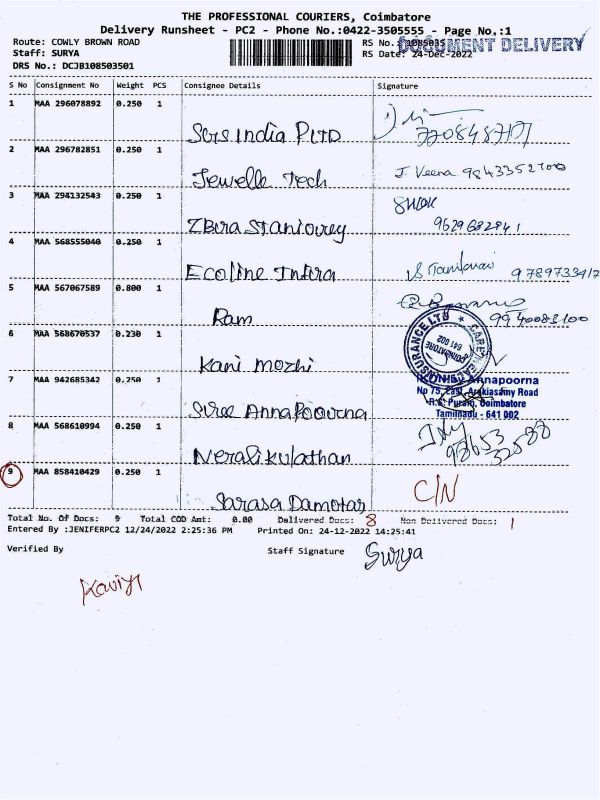 THE PROFESSIONAL COURIERS, Coimbatore
Delivery Runsheet - PC2 - Phone No.:0422-3505555 - Page No.:1
Route: COWLY BROWN ROAD
RS No.
DOCUMENT DELIVERY
Staff: SURYA
RS Date: 24-Dec-2022
DRS No.: DCJB108503501
S No Consignment No Weight PCS Consignee Details Signature
1 MAA 296078892 0.250 1
SGS India P LTD
2 MAA 296782851 0.250 1
Jewelle Tech
J. Veena
3 MAA 294132543 0.250 1
Zbira Staniovrey
9629682841
4 MAA 568555040 0.250 1
Ecoline Infira
5 MAA 567067589 0.800 1
Ram
9940083100
6 MAA 568670537 0.230 1
Kani mozhi
7 MAA 942685342 0.250 1
Annapoorna
No 75, East Arokiasamy Road
R.S. Puram, Coimbatore
Tamilnadu - 641 002
Sviree Annapoovrna
8 MAA 568610994 0.250 1
Neralikulathan
9 MAA 858410429 0.250 1
C/N
Sarasa Damotar
Total No. Of Docs: 9 Total COD Amt: 0.00 Delivered Docs: 8 Non Delivered Docs: 1
Entered By :JENIFERPC2 12/24/2022 2:25:36 PM Printed On: 24-12-2022 14:25:41
Verified By Staff Signature Surya